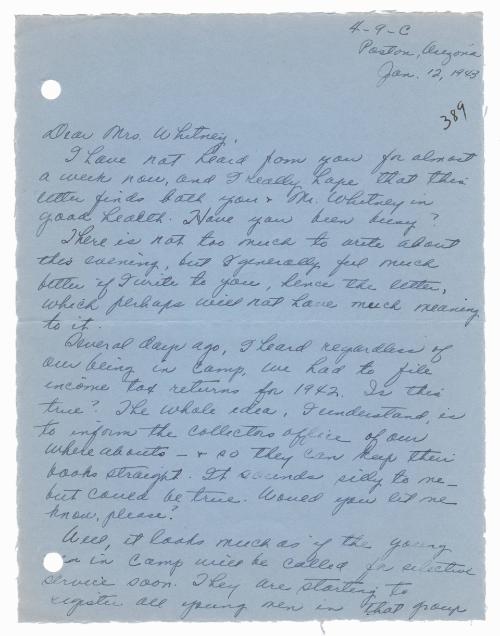 4-9-C
Poston, Arizona
Jan. 12, 1943
389
Dear Mrs. Whitney,
I have not heard from you for almost
a week now, and I really hope that this
letter finds both you & Mr. Whitney in
good health. Have you been busy?
There is not too much to write about
this evening, but I generally feel much
better if I write to you, hence the letter,
which perhaps will not have much meaning
to it.
Several days ago, I heard regardless of
our being in camp, we had to file
income tax returns for 1942. Is this
true? The whole idea, I understand, is
to inform the collectors office of our
whereabouts - & so they can keep their
books straight. It sounds silly to me -
but could be true. Would you let me
know, please?
Well, it looks much as if the young
in camp will be called for selective
service soon. They are starting to
register all young men in that group